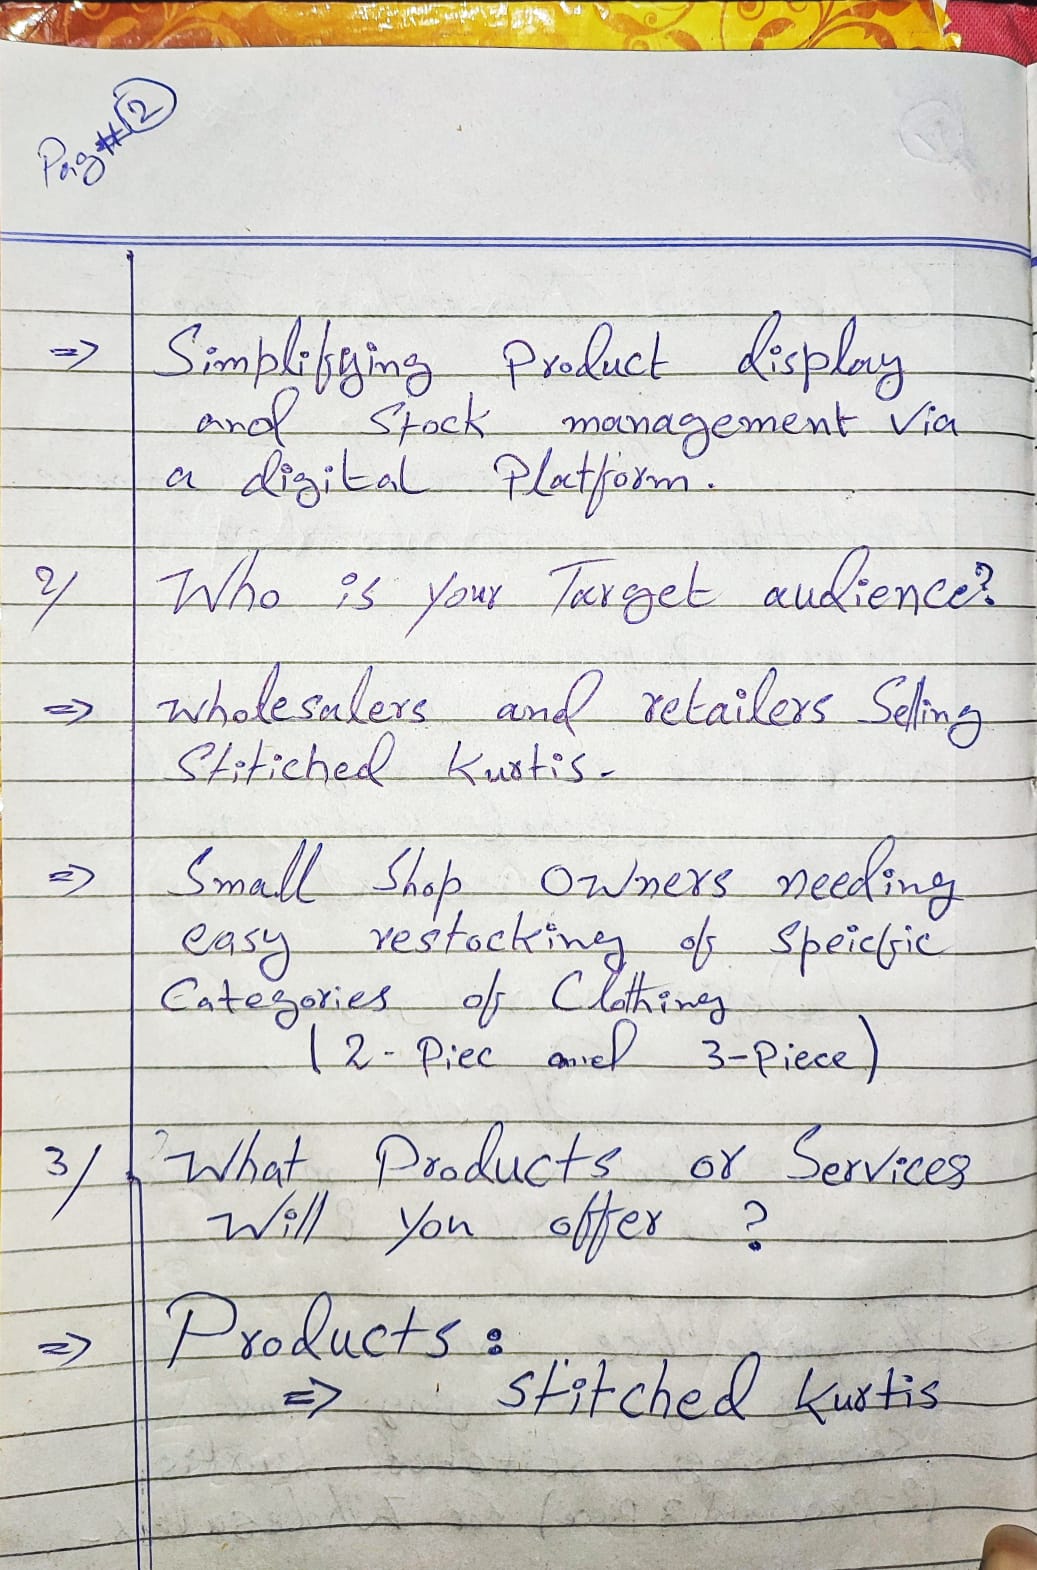 Pag#2
=> Simplifying Product display
and Stock management Via
a digital Platform.
2/ Who is your Target audience?
=> wholesalers and retailers Selling
Stitiched Kurtis.
=> Small Shop Owners needing
easy restocking of Speicfic
Categories of Clothing
(2-Piec and 3-Piece)
3/ What Products or Services
Will you offer ?
=> Products:
=> Stitched Kurtis